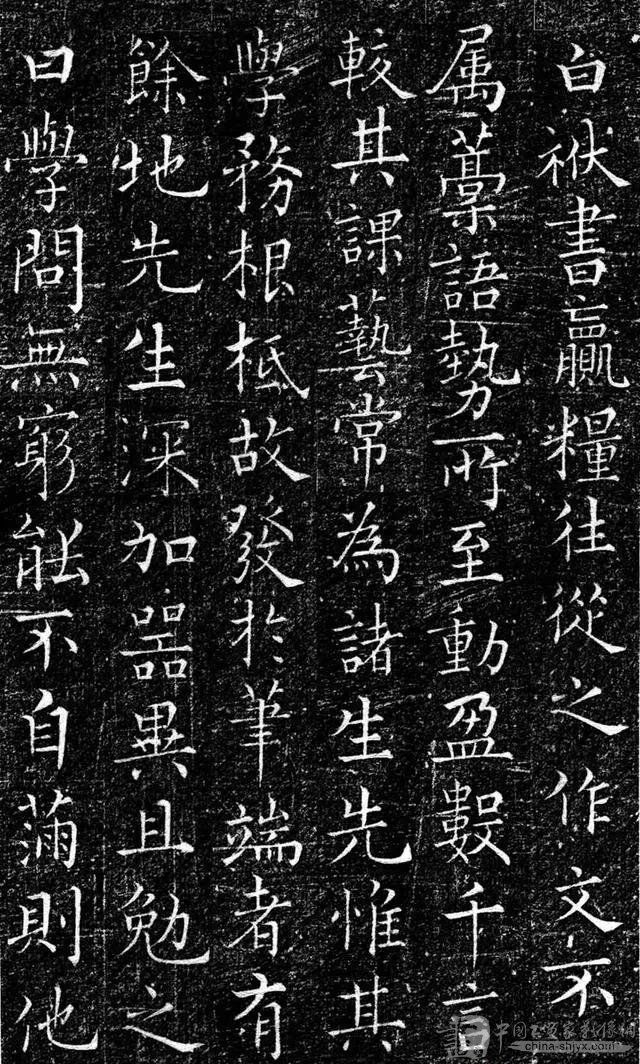 白袱書贏糧往從之作文不
属藁語勢所至動盈數千言
較其課藝常為諸生先惟其
學務根柢故發於筆端者有
餘地先生深加器異且勉之
曰學問無窮能不自滿則他
china-shjyx.com